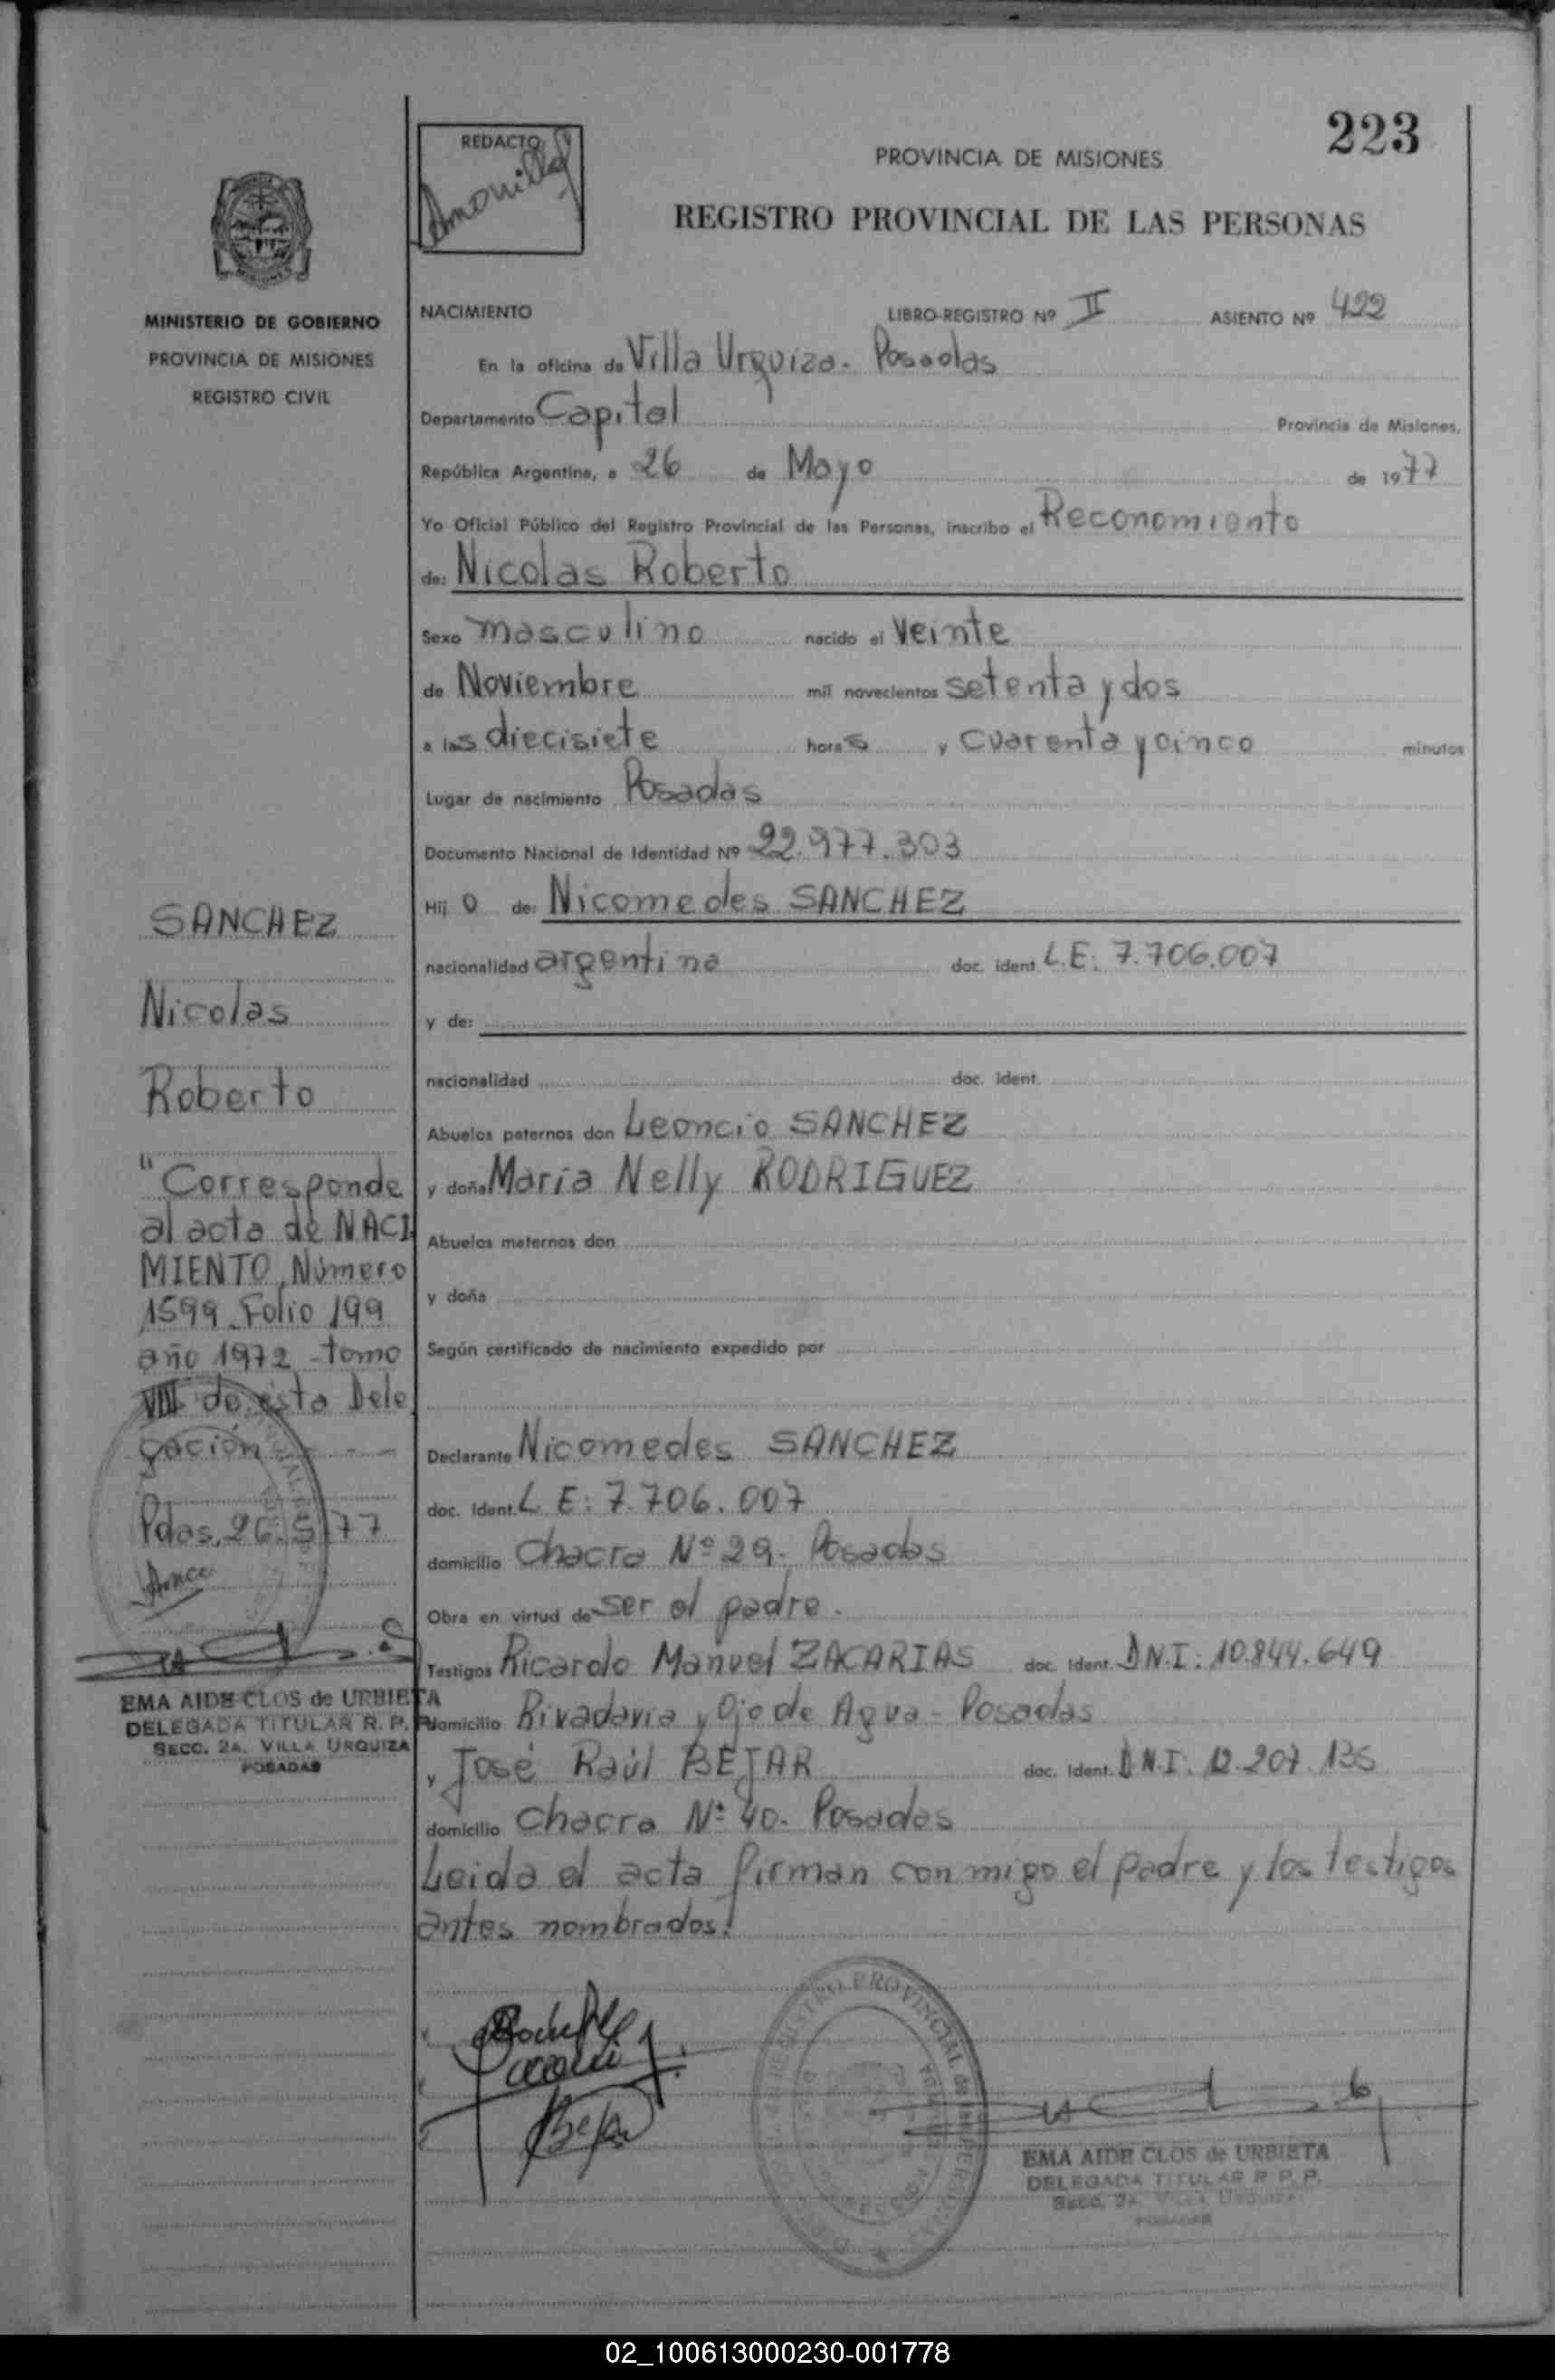 223
REDACTO
PROVINCIA DE MISIONES
REGISTRO PROVINCIAL DE LAS PERSONAS
MINISTERIO DE GOBIERNO
PROVINCIA DE MISIONES
REGISTRO CIVIL
NACIMIENTO LIBRO-REGISTRO Nº II ASIENTO Nº 422
En la oficina de Villa Urquiza - Posadas
Departamento Capital Provincia de Misiones,
República Argentina, a 26 de Mayo de 1977
Yo Oficial Público del Registro Provincial de las Personas, inscribo el Reconomiento
de: Nicolas Roberto
Sexo masculino nacido el Veinte
de Noviembre mil novecientos setenta y dos
a las diecisiete horas y cuarenta y cinco minutos
Lugar de nacimiento Posadas
Documento Nacional de Identidad Nº 22.977.303
Hijo de: Nicomedes SANCHEZ
nacionalidad argentina doc. ident. L.E: 7.706.007
y de:
nacionalidad doc. ident.
Abuelos paternos don Leoncio SANCHEZ
y doña Maria Nelly RODRIGUEZ
Abuelos maternos don
y doña
Según certificado de nacimiento expedido por
Declarante Nicomedes SANCHEZ
doc. Ident. L.E: 7.706.007
domicilio Chacra Nº 29- Posadas
Obra en virtud de ser el padre.
Testigos Ricardo Manuel ZACARIAS doc. Ident. D.N.I: 10.844.649
domicilio Rivadavia y Ojo de Agua - Posadas
y José Raúl BEJAR doc. Ident. D.N.I: 12.207.135
domicilio Chacra Nº 40- Posadas
Leida el acta firman conmigo el padre y los testigos
antes nombrados!
SANCHEZ
Nicolas
Roberto
"Corresponde
al acta de NACI
MIENTO, Número
1599 Folio 199
año 1972 - tomo
VIII de ésta Dele
gación - -
Pdas, 26.5.77
EMA AIDE CLOS de URBIETA
DELEGADA TITULAR R. P. P.
SECC. 2A. VILLA URQUIZA
POSADAS
Bejar
EMA AIDE CLOS de URBIETA
DELEGADA TITULAR R. P. P.
SECC. 2A. VILLA URQUIZA
POSADAS
02_100613000230-001778